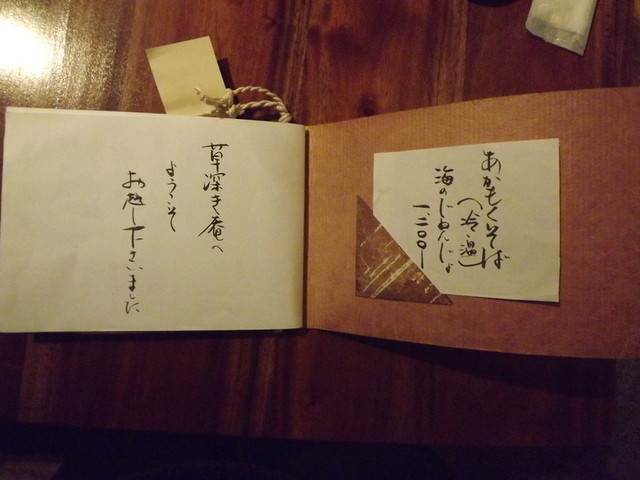 草深き庵へ
ようこそ
お越し下さいました
あかもくそば
(冷・温)
海のじねんじょ
一、二〇〇ー